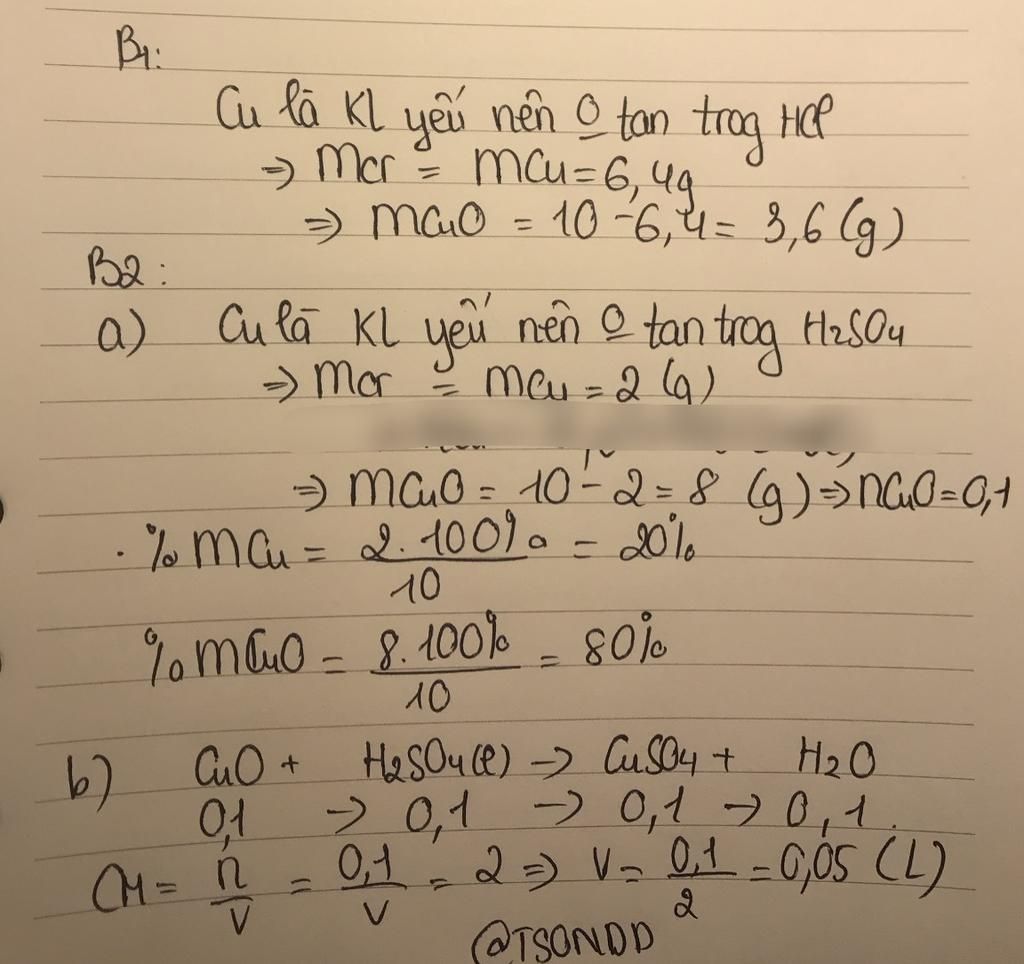 B1:
Cu là KL yếu nên O tan trog HCl
=> mcr = mCu = 6,4g
=> mCuO = 10 - 6,4 = 3,6 (g)
B2:
a) Cu là KL yếu nên O tan trog H2SO4
=> mcr = mCu = 2 (g)
=> mCuO = 10 - 2 = 8 (g) => nCuO = 0,1
. % mCu = 2.100% / 10 = 20%
% mCuO = 8.100% / 10 = 80%
b) CuO + H2SO4(l) -> CuSO4 + H2O
0,1 -> 0,1 -> 0,1 -> 0,1.
CM = n / V = 0,1 / V = 2 => V = 0,1 / 2 = 0,05 (L)
@TSONDD